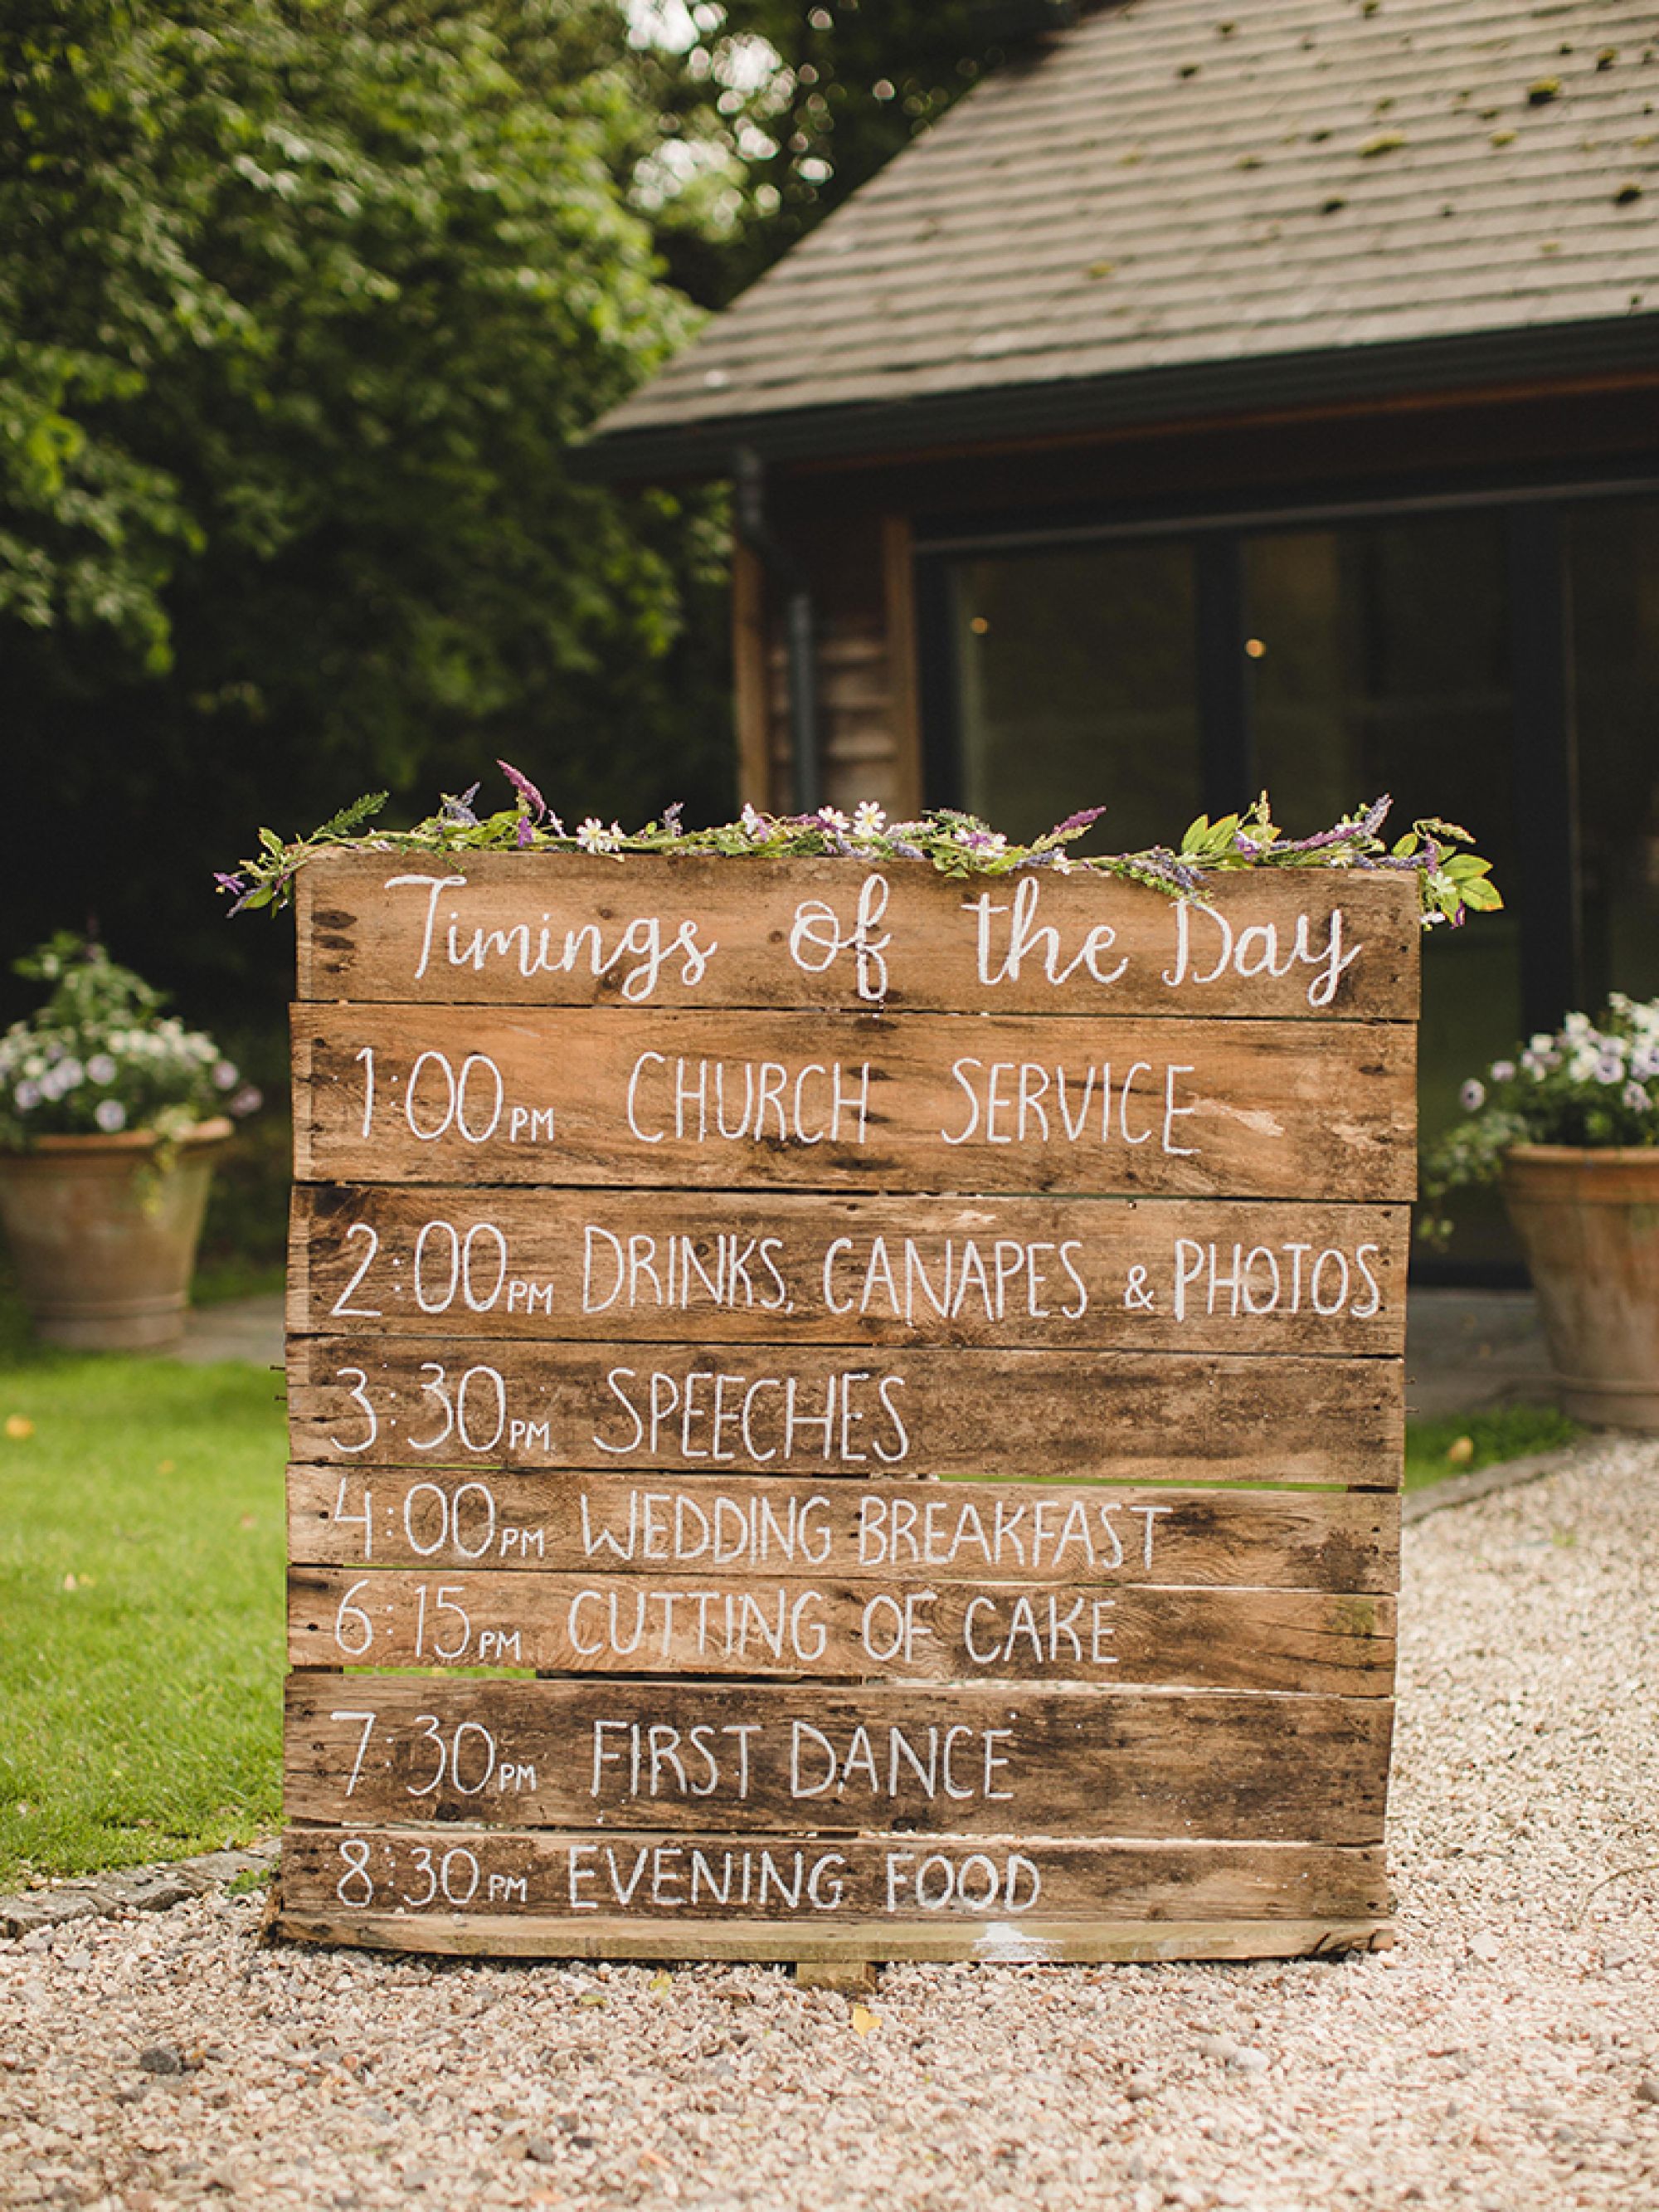 Timings of the Day
1:00PM CHURCH SERVICE
2:00PM DRINKS, CANAPES & PHOTOS
3:30PM SPEECHES
4:00PM WEDDING BREAKFAST
6:15PM CUTTING OF CAKE
7:30PM FIRST DANCE
8:30PM EVENING FOOD